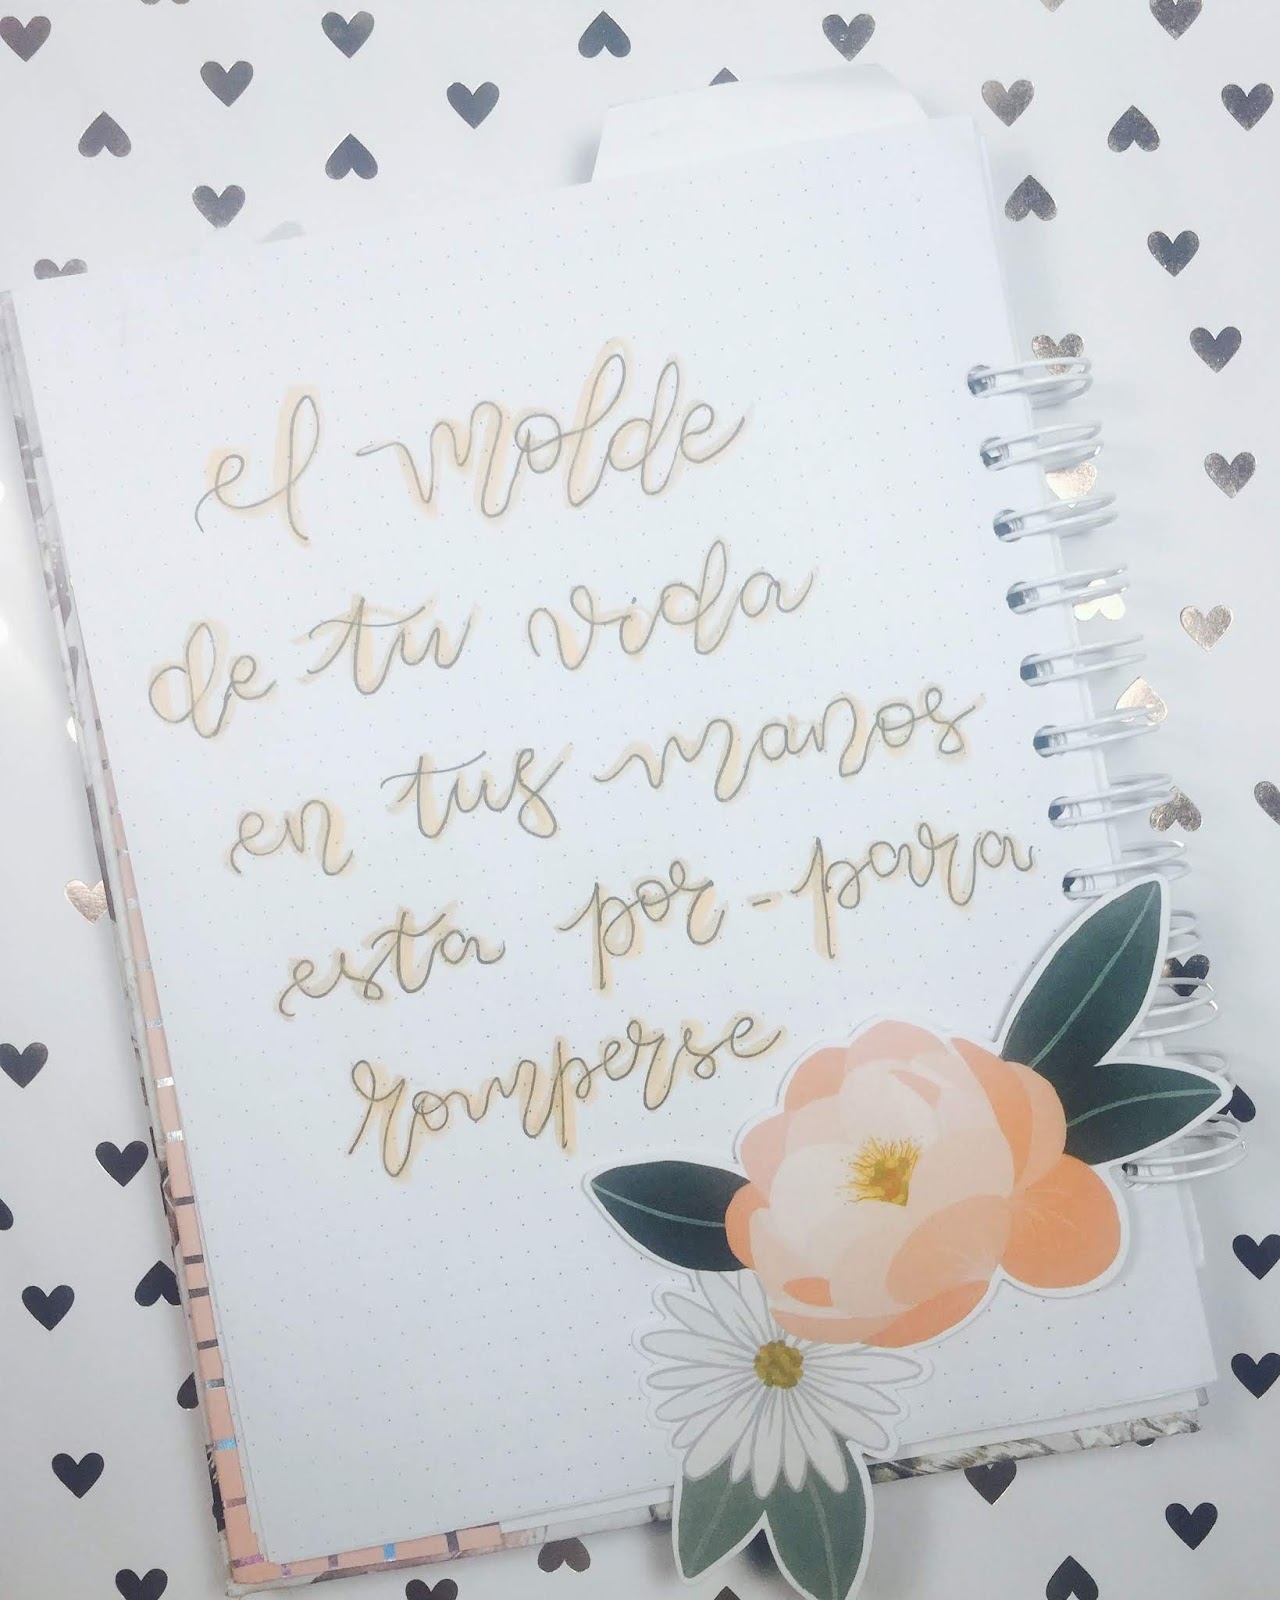 el molde
de tu vida
en tus manos
esta por-para
romperse